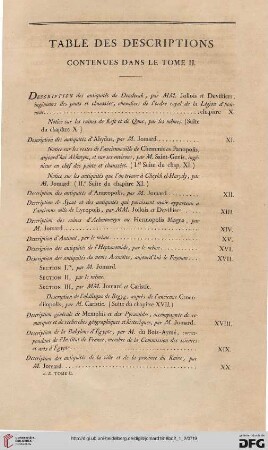 TABLE DES DESCRIPTIONS
CONTENUES DANS LE TOME II.
DESCRIPTION des antiquités de Denderah, par MM. Jollois et Devilliers,
ingénieurs des ponts et chaussées, chevaliers de l'ordre royal de la Légion d'hon-
neur. chapitre X.
Notice sur les ruines de Keft et de Qous, par les mêmes. (Suite
du chapitre X.)
Description des antiquités d'Abydus, par M. Jomard. XI.
Notice sur les restes de l'ancienne ville de Chemmis ou Panopolis,
aujourd'hui Akhmym, et sur ses environs, par M. Saint-Genis, ingé-
nieur en chef des ponts et chaussées. (I.re Suite du chap. XI.)
Notice sur les antiquités que l'on trouve à Cheykh el-Harydy, par
M. Jomard. (II.e Suite du chapitre XI.)
Description des antiquités d'Antæopolis, par M. Jomard. XII.
Description de Syout et des antiquités qui paraissent avoir appartenu à
l'ancienne ville de Lycopolis, par MM. Jollois et Devilliers. XIII.
Description des ruines d'Achmouneyn ou Hermopolis Magna, par
M. Jomard. XIV.
Description d'Antinoé, par le même. XV.
Description des antiquités de l'Heptanomide, par le même. XVI.
Description des antiquités du nome Arsinoïte, aujourd'hui le Fayoum. XVII.
SECTION I.re, par M. Jomard.
SECTION II, par le même.
SECTION III, par MM. Jomard et Caristie.
Description de l'obélisque de Begyg, auprès de l'ancienne Croco-
dilopolis, par M. Caristie. (Suite du chapitre XVII.)
Description générale de Memphis et des Pyramides, accompagnée de re-
marques géographiques et historiques, par M. Jomard. XVIII.
Description de la Babylone d'Égypte, par M. du Bois-Aymé, corres-
pondant de l'Institut de France, membre de la Commission des sciences
et arts d'Égypte. XIX.
Description des antiquités de la ville et de la province du Kaire, par
M. Jomard. XX.
UNIVERSITÄTS-BIBLIOTHEK HEIDELBERG
DFG